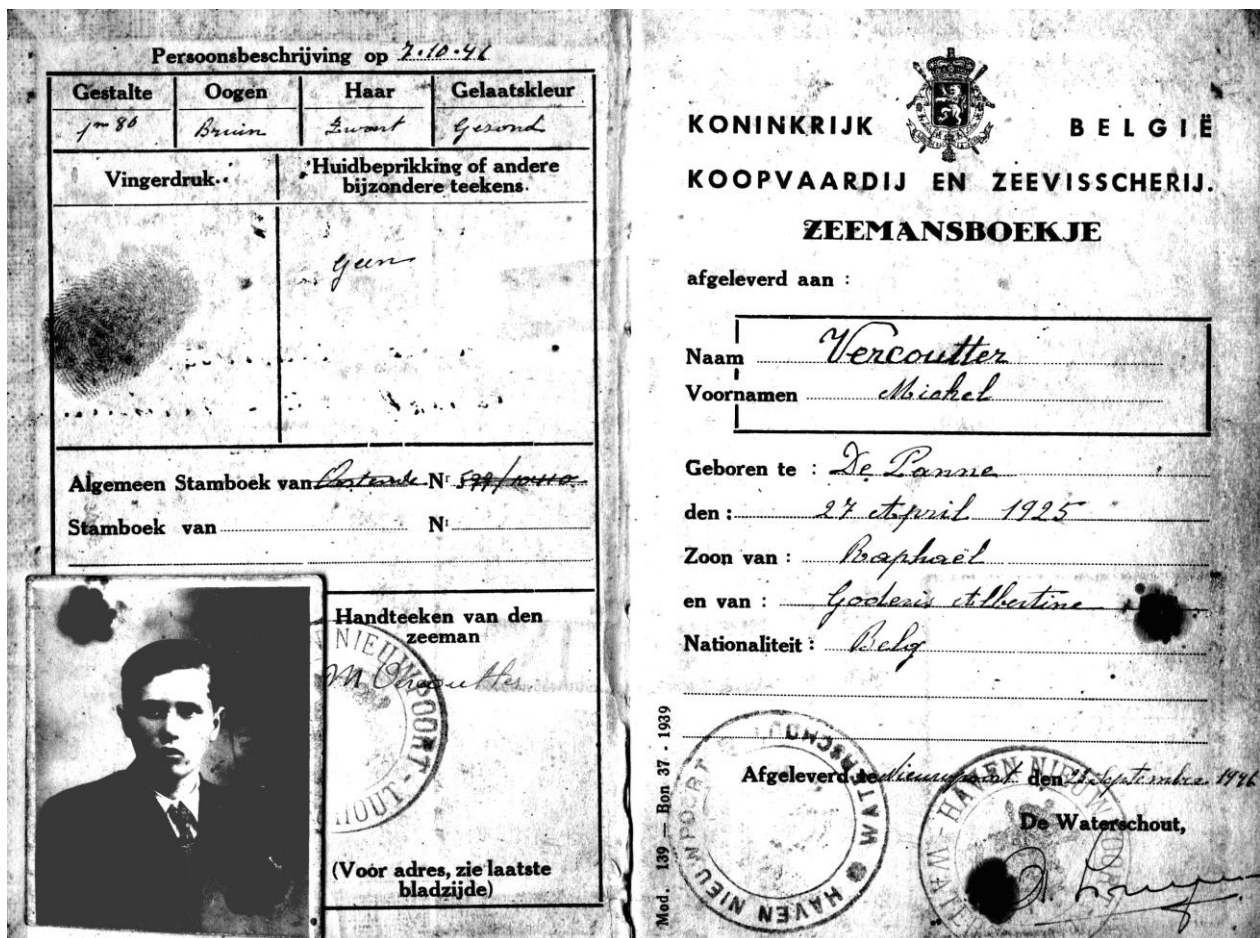 Persoonsbeschrijving op 7.10.46
Gestalte Oogen Haar Gelaatskleur
1m 80 Bruin Zwart Gezond
Vingerdruk. Huidbeprikking of andere
bijzondere teekens.
Geen
Algemeen Stamboek van Oostende Nr
Stamboek van Nr
Handteeken van den
zeeman
M Vercoutter
(Voor adres, zie laatste
bladzijde)
KONINKRIJK BELGIË
KOOPVAARDIJ EN ZEEVISSCHERIJ.
ZEEMANSBOEKJE
afgeleverd aan :
Naam Vercoutter
Voornamen Michel
Geboren te : De Panne
den : 27 April 1925
Zoon van : Raphaël
en van : Goderis Albertine
Nationaliteit : Belg
Afgeleverd te Nieuwpoort den September 1946
De Waterschout,
Mod. 139 — Bon 37 - 1939
HAVEN NIEUWPOORT WATERSCHOUT
HAVEN NIEUWPOORT
NIEUWPOORT